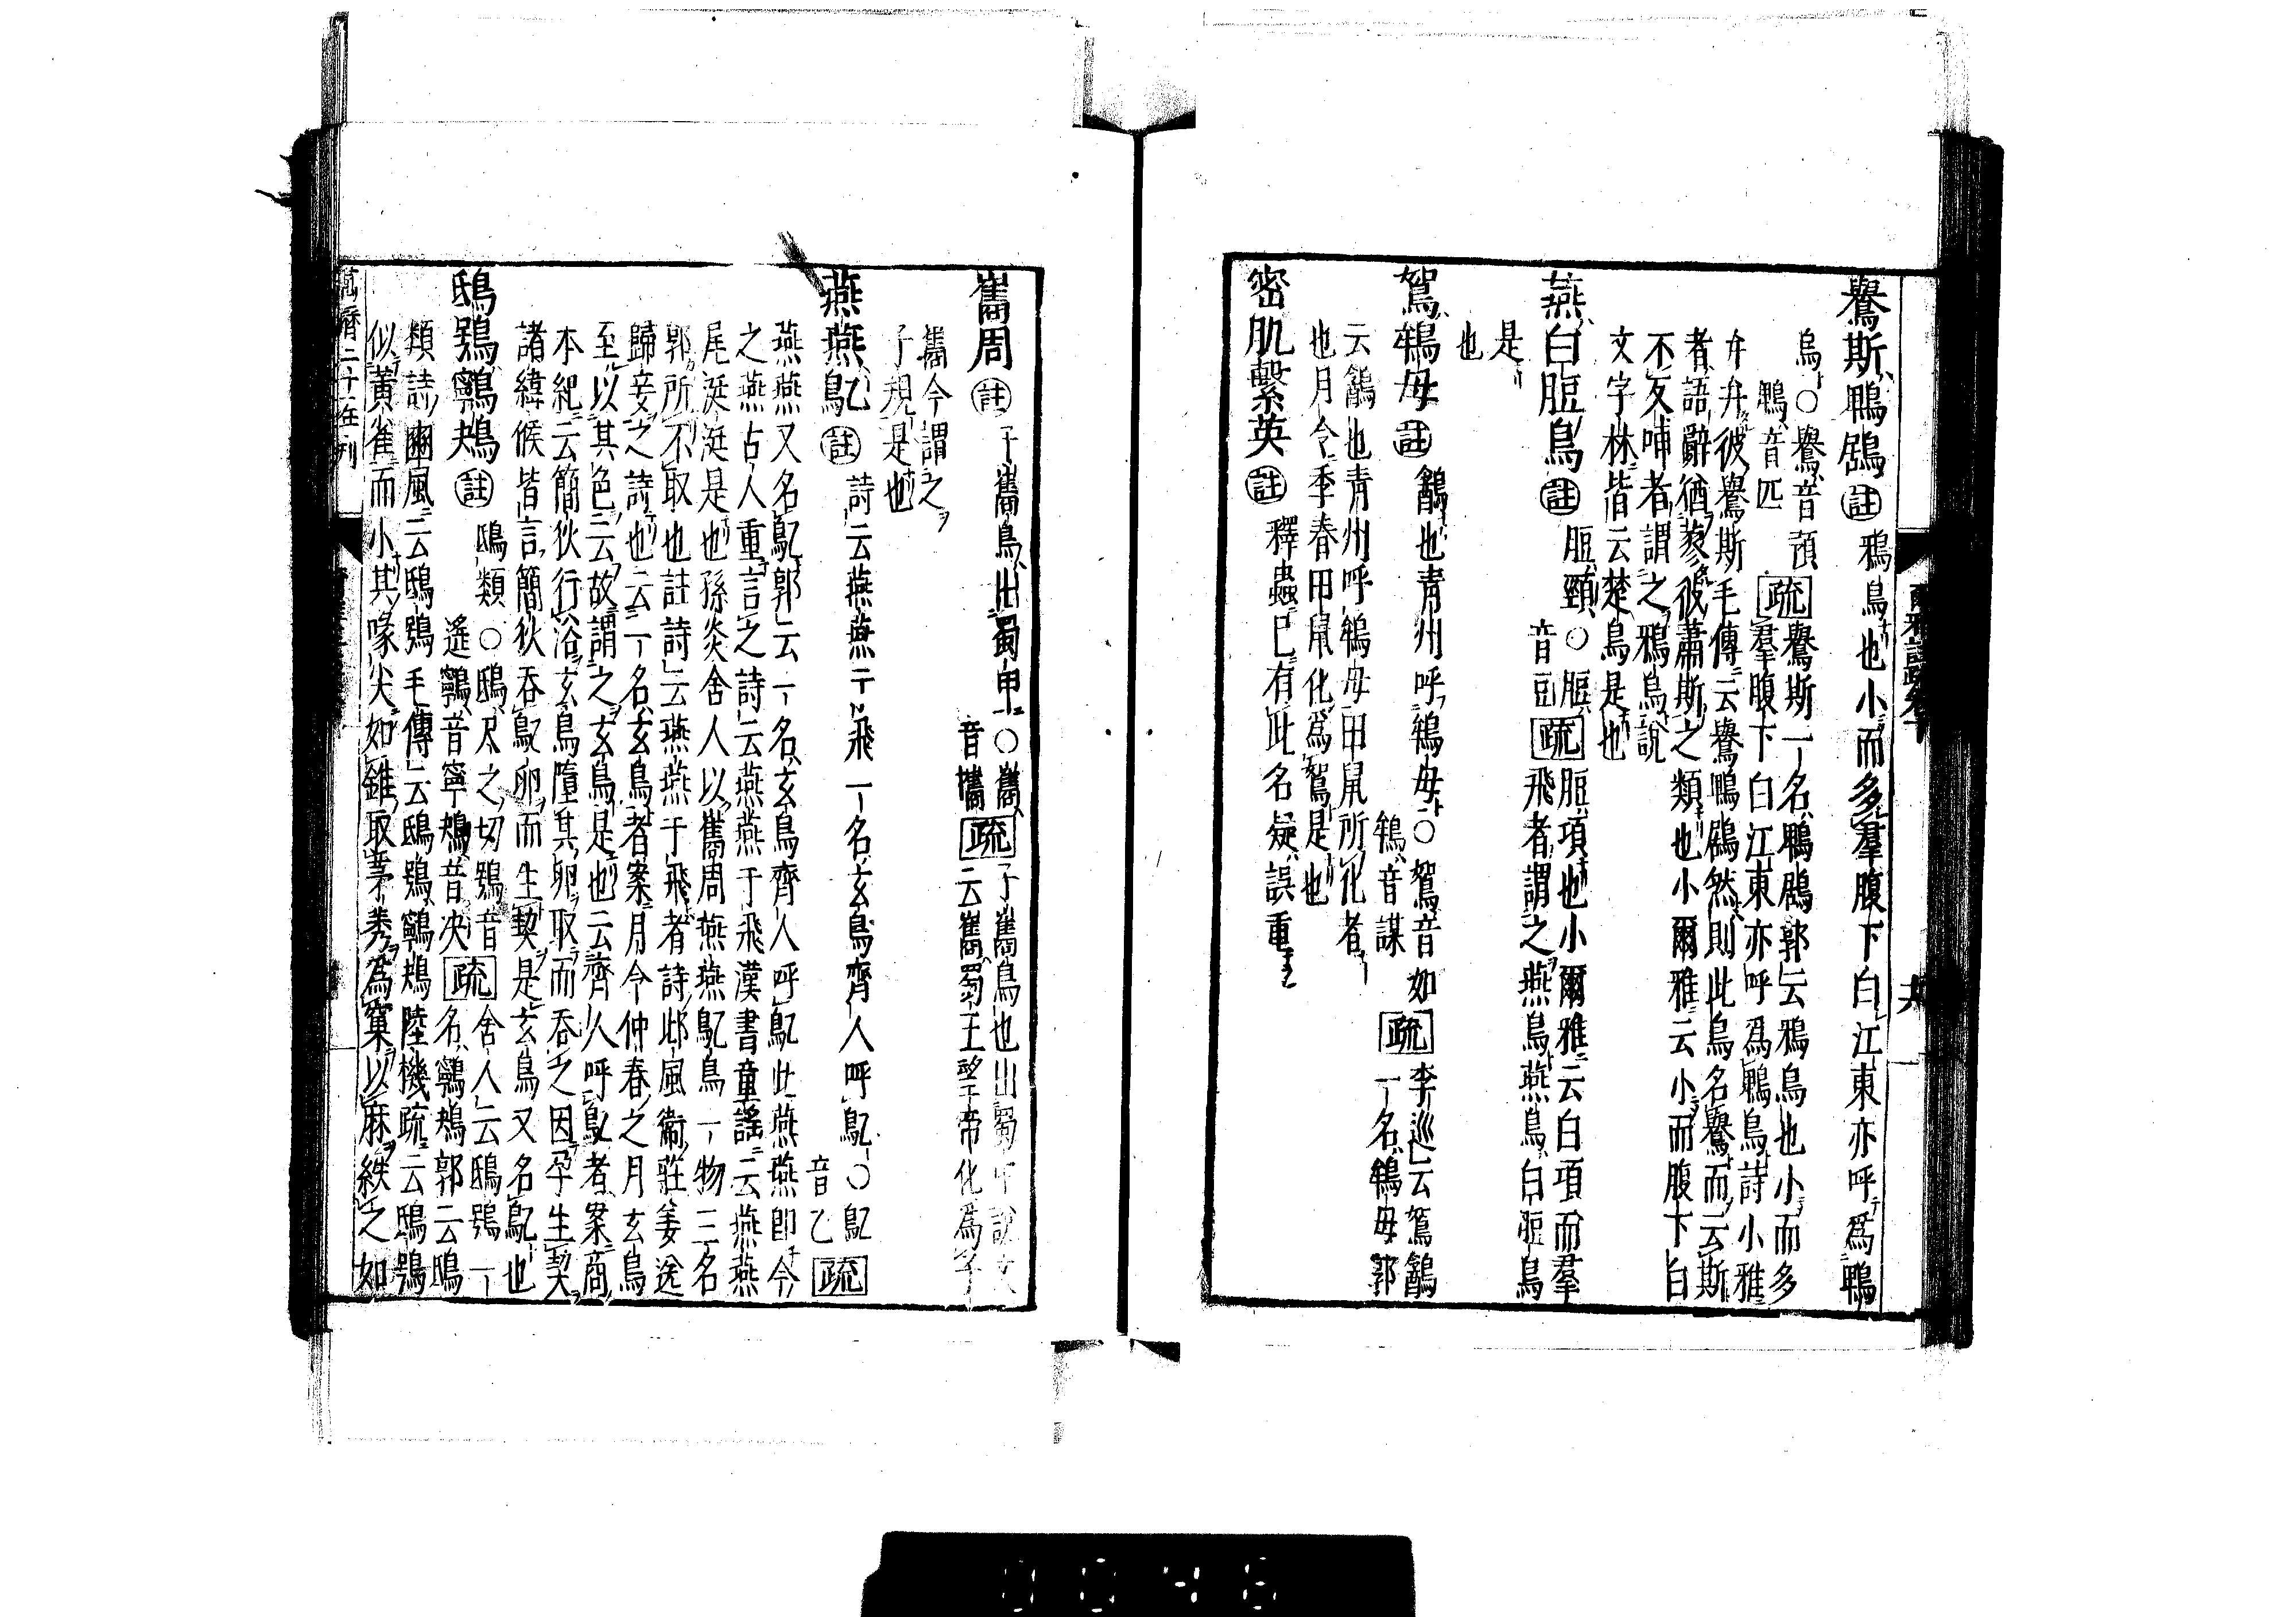 鸒斯鵯鶋 註 鴉烏也小而多羣腹下白江東亦呼爲鵯
烏○鸒音預
鵯音匹
疏 鸒斯一名鵯鶋郭云鴉烏也小而多
羣腹下白江東亦呼爲鵯烏詩小雅
弁弁彼鸒斯毛傳云鸒鵯鶋然則此烏名鸒而云斯
者語辭猶蓼彼蕭斯之類也小爾雅云小而腹下白
不反哺者謂之鴉烏說
文字林皆云楚烏是也
燕白脰烏 註 脰頸○脰
音豆
疏 脰項也小爾雅云白項而羣
飛者謂之燕烏燕烏白脰烏
是
也
鴽鴾母 註 鷂也青州呼鴾母○鴽音如
鴾音謀
疏 李巡云鴽鷂
一名鴾母郭
云鷂也青州呼鴾母田鼠所化者
也月令季春田鼠化爲鴽是也
密肌繫英 註 釋蟲已有此名疑誤重
爾雅註疏卷
巂周 註 子巂鳥出蜀中○巂
音攜
疏 子巂鳥也出蜀中說文
云巂蜀王望帝化爲子
巂今謂之
子規是也
燕燕鳦 註 詩云燕燕于飛一名玄鳥齊人呼鳦○鳦
音乙
疏
燕燕又名鳦郭云一名玄鳥齊人呼鳦此燕燕即今
之燕古人重言之詩云燕燕于飛漢書童謠云燕燕
尾涎涎是也孫炎舍人以巂周燕燕鳦鳥一物三名
郭所不取也註詩云燕燕于飛者詩邶風衞莊姜送
歸妾之詩也云一名玄鳥者案月令仲春之月玄鳥
至以其色云故謂之玄鳥是也云齊人呼鳦者案商
本紀云簡狄行浴玄鳥墮其卵取而吞之因孕生契
諸緯候皆言簡狄吞鳦卵而生契是玄鳥又名鳦也
鴟鴞鸋鴂 註 鴟類○鴟尺之切鴞音
遙鸋音寧鴂音决
疏 舍人云鴟鴞一
名鸋鴂郭云鴟
類詩豳風云鴟鴞毛傳云鴟鴞鸋鴂陸機疏云鴟鴞
似黃雀而小其喙尖如錐取茅秀爲窠以麻紩之如
萬曆二十一年刊